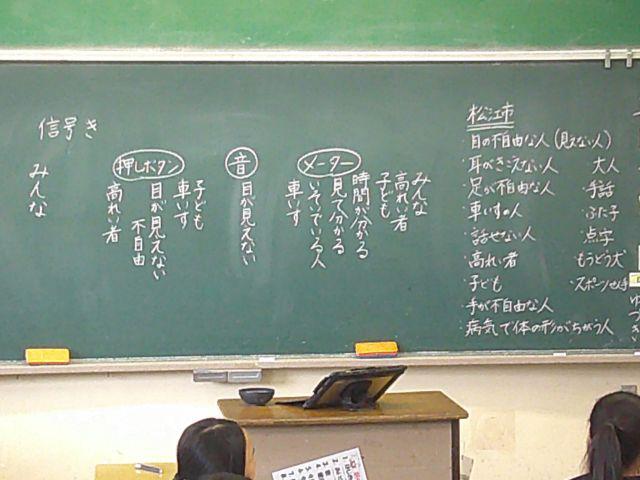 松江市
・目の不自由な人(見えない人)
・耳がきこえない人
・足が不自由な人
・車いすの人
・話せない人
・高れい者
・子ども
・手が不自由な人
・病気で体の形がちがう人
大人
・手話
・ふた子
・点字
・もうどう犬
・スポーツせん手
メーター
みんな
高れい者
子ども
時間が分かる
見て分かる
いそいでいる人
車いす
音
目が見えない
押しボタン
子ども
車いす
目が見えない
不自由
高れい者
信号き
みんな